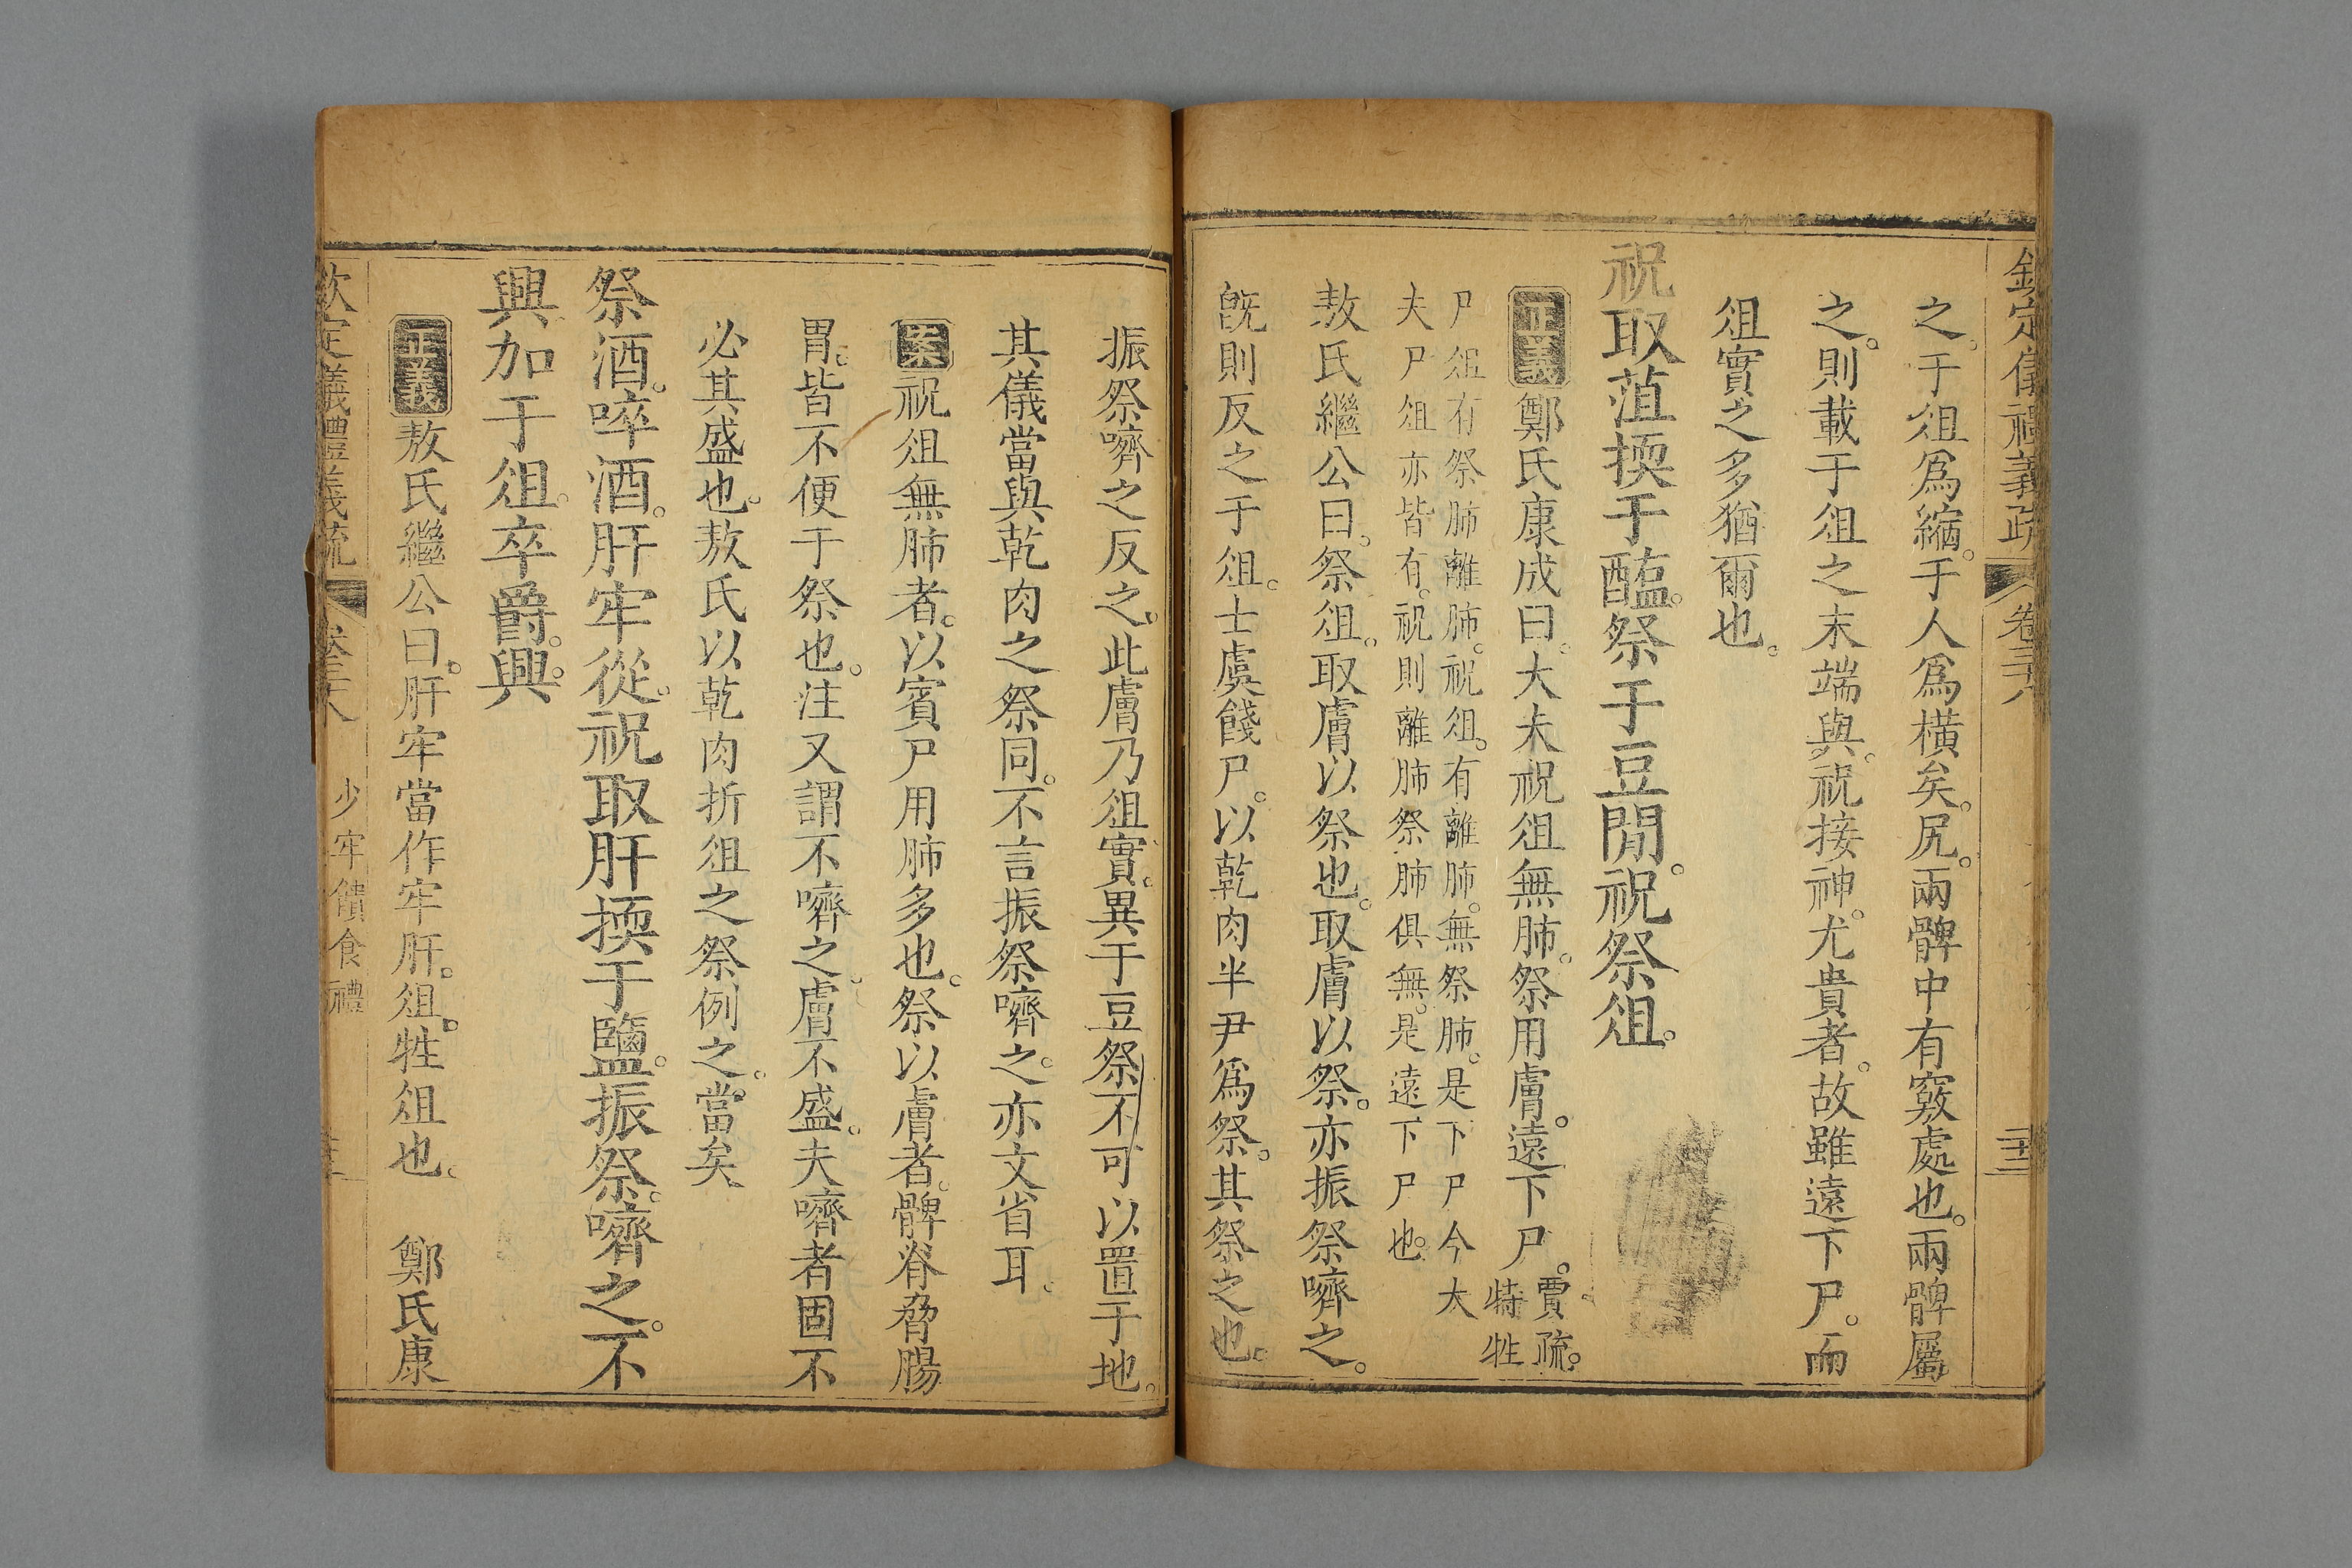 欽定儀禮義疏 卷三十八 三十三
之于俎爲縮。于人爲橫矣。尻。兩髀中有竅處也。兩髀屬
之。則載于俎之末端與。祝接神。尤貴者。故雖遠下尸。而
俎實之多猶爾也。
祝取菹擩于醢。祭于豆閒。祝祭俎。
正義鄭氏康成曰。大夫祝俎無肺。祭用膚。遠下尸。賈疏。特牲
尸俎有祭肺離肺。祝俎。有離肺。無祭肺。是下尸今大
夫尸俎亦皆有。祝則離肺祭肺俱無。是遠下尸也。
敖氏繼公曰。祭俎。取膚以祭也。取膚以祭。亦振祭嚌之。
旣則反之于俎。士虞餞尸。以乾肉半尹爲祭。其祭之也。
振祭嚌之反之。此膚乃俎實。異于豆祭不可以置于地。
其儀當與乾肉之祭同。不言振祭嚌之。亦文省耳。
案祝俎無肺者。以賓尸用肺多也。祭以膚者。髀脊脅腸
胃。皆不便于祭也。注又謂不嚌之。膚不盛。夫嚌者固不
必其盛也。敖氏以乾肉折俎之祭例之。當矣。
祭酒。啐酒。肝牢從。祝取肝擩于鹽。振祭。嚌之。不
興加于俎。卒爵。興。
正義敖氏繼公曰。肝牢當作牢肝。俎。牲俎也。 鄭氏康
欽定儀禮義疏 卷三十八 少牢饋食禮